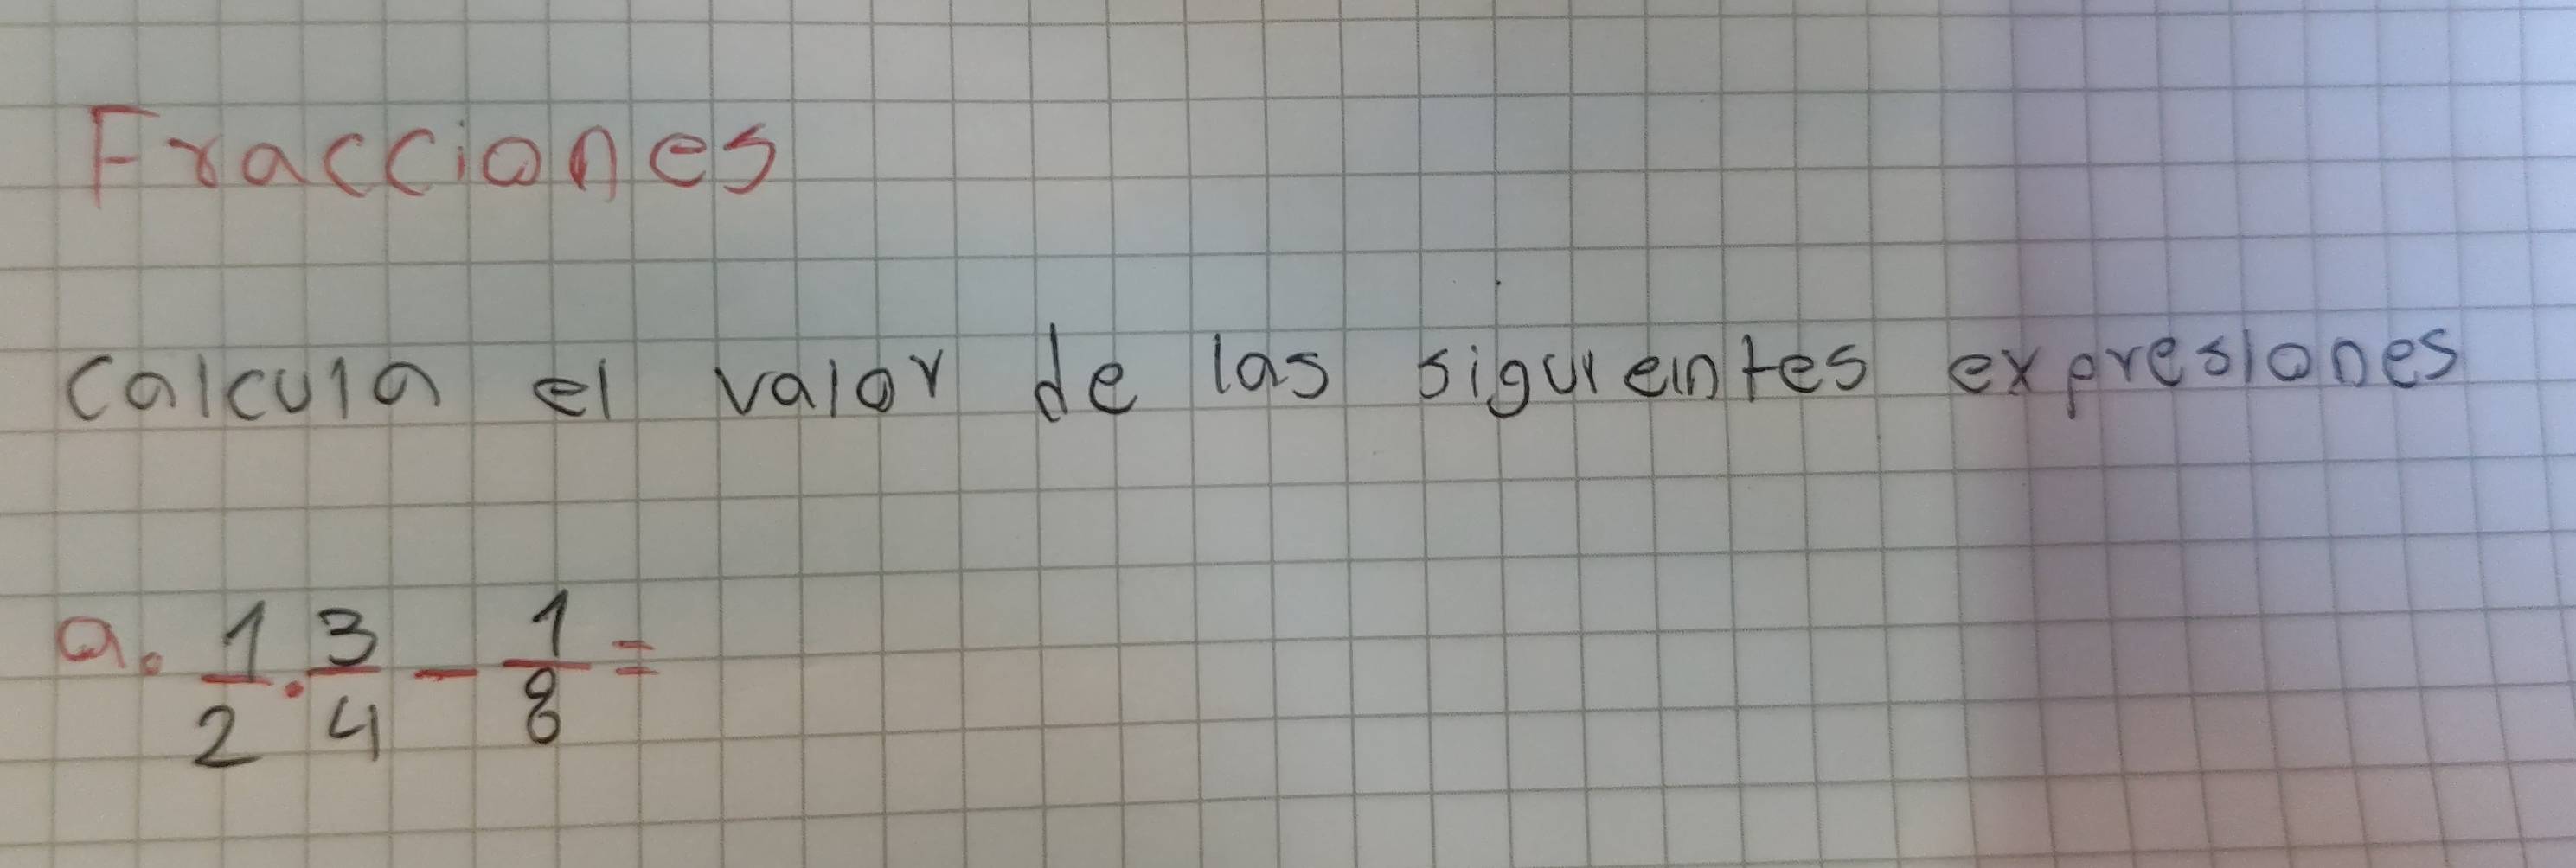 Fracciones
Calcula el valor de las siguieintes expresiones
a. 1/2 . 3/4 - 1/8 =